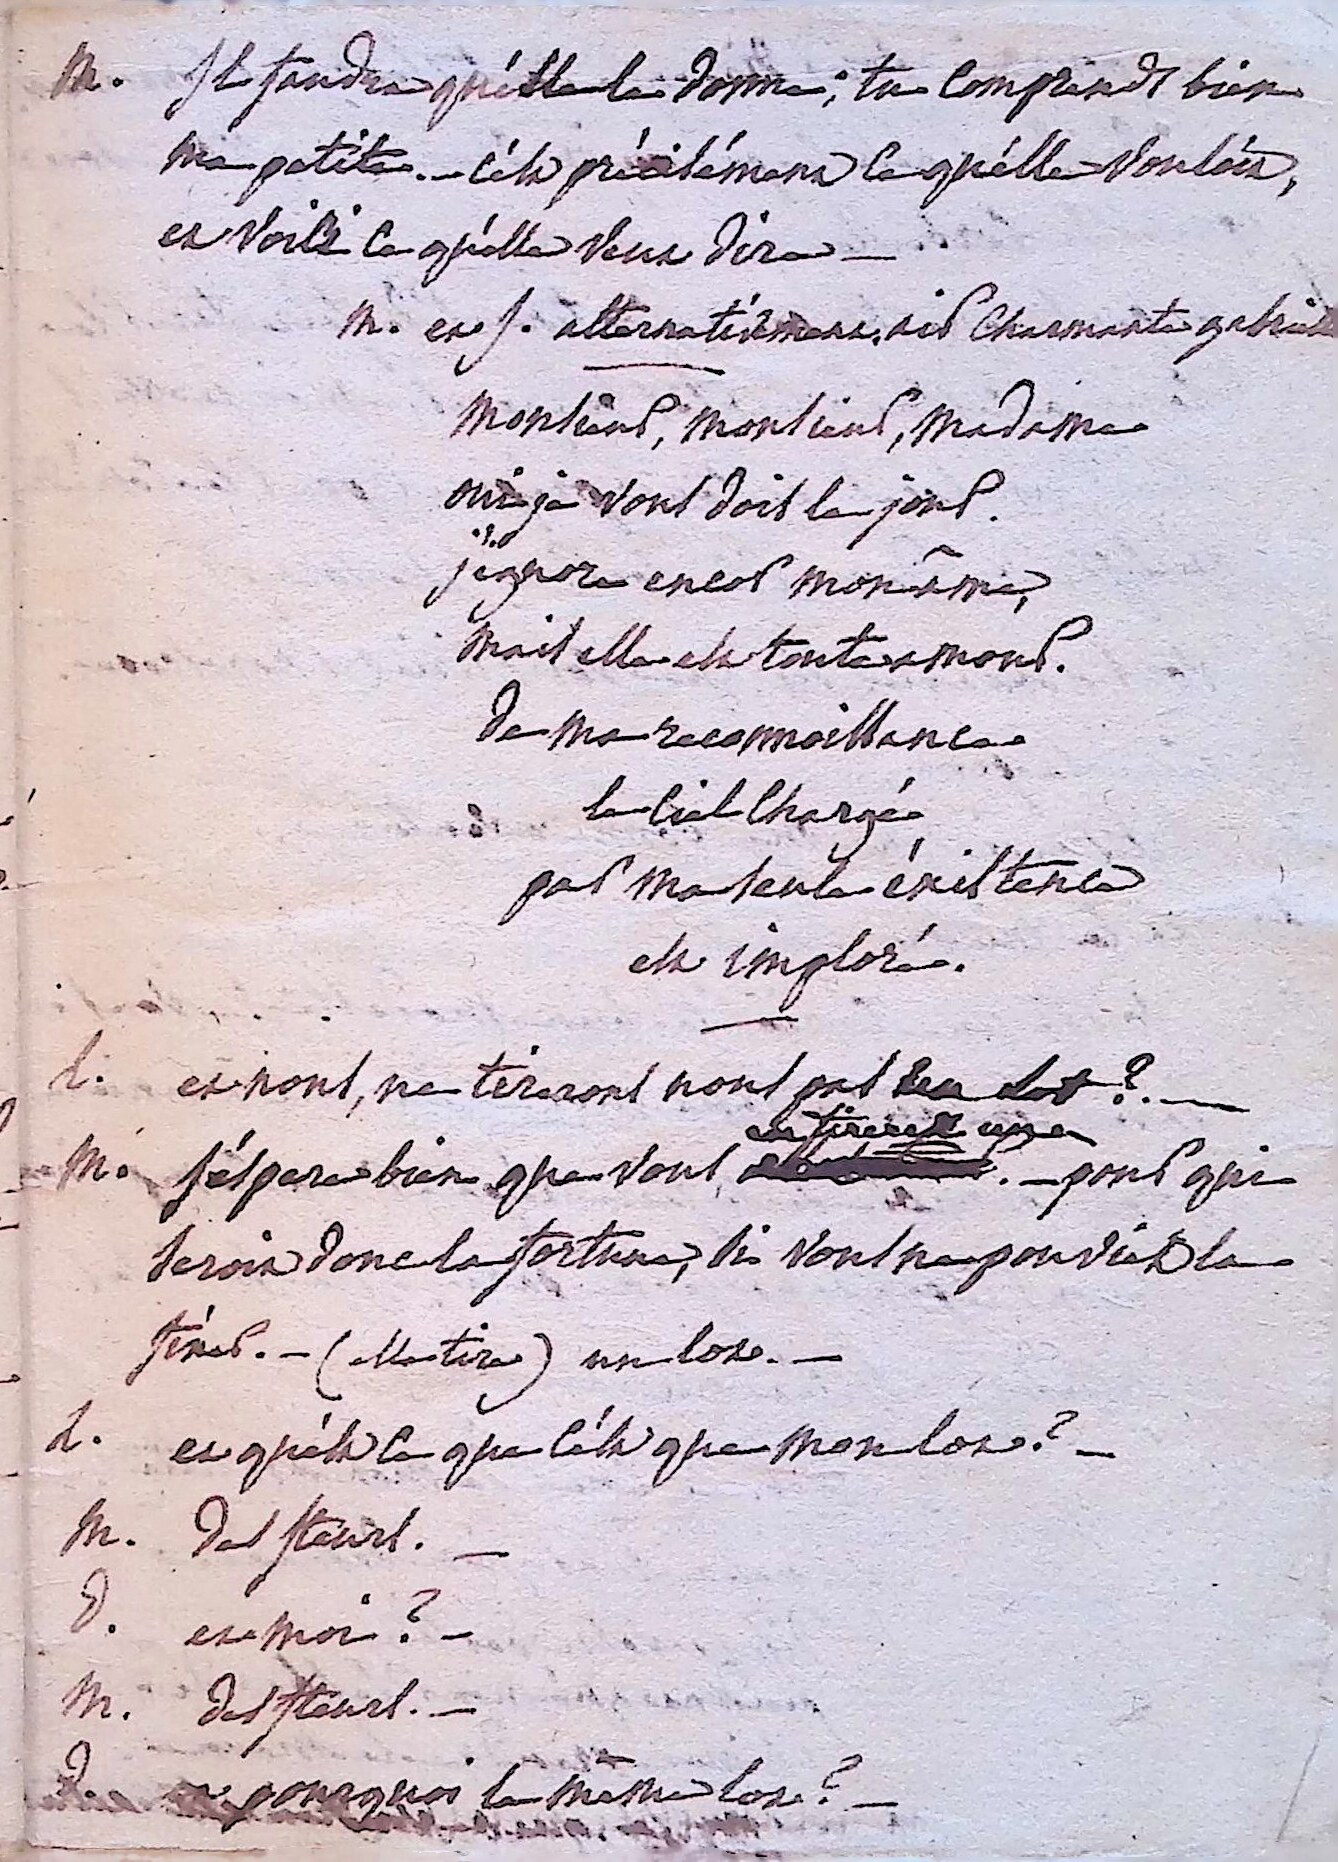 M. Il faudra qu'elle le donne; tu comprends bien
ma petite. – c'est précisément ce qu'elle vouloit,
et voilà ce qu'elle veut dire —
M. et J. alternativement. air Charmante gabrielle
Monsieur, Monsieur, Madame
oui je vous dois le jour.
j'ignore encor mon âme,
mais elle est toute amour.
De ma reconnoissance
le Ciel Chargé
par ma seule éxistence
est imploré.
L. et nous, ne tirerons nous pas un lot? —
en tirerez un
M. J'éspere bien que vous . – pour qui
seroit donc la fortune, si vous ne pouviez la
fixer. – (elle tire) un lot. —
L. et qu'est ce que c'est que mon lot? –
M. Des fleurs. —
D. et moi? –
M. des fleurs. –
D. et pourquoi le même lot? –